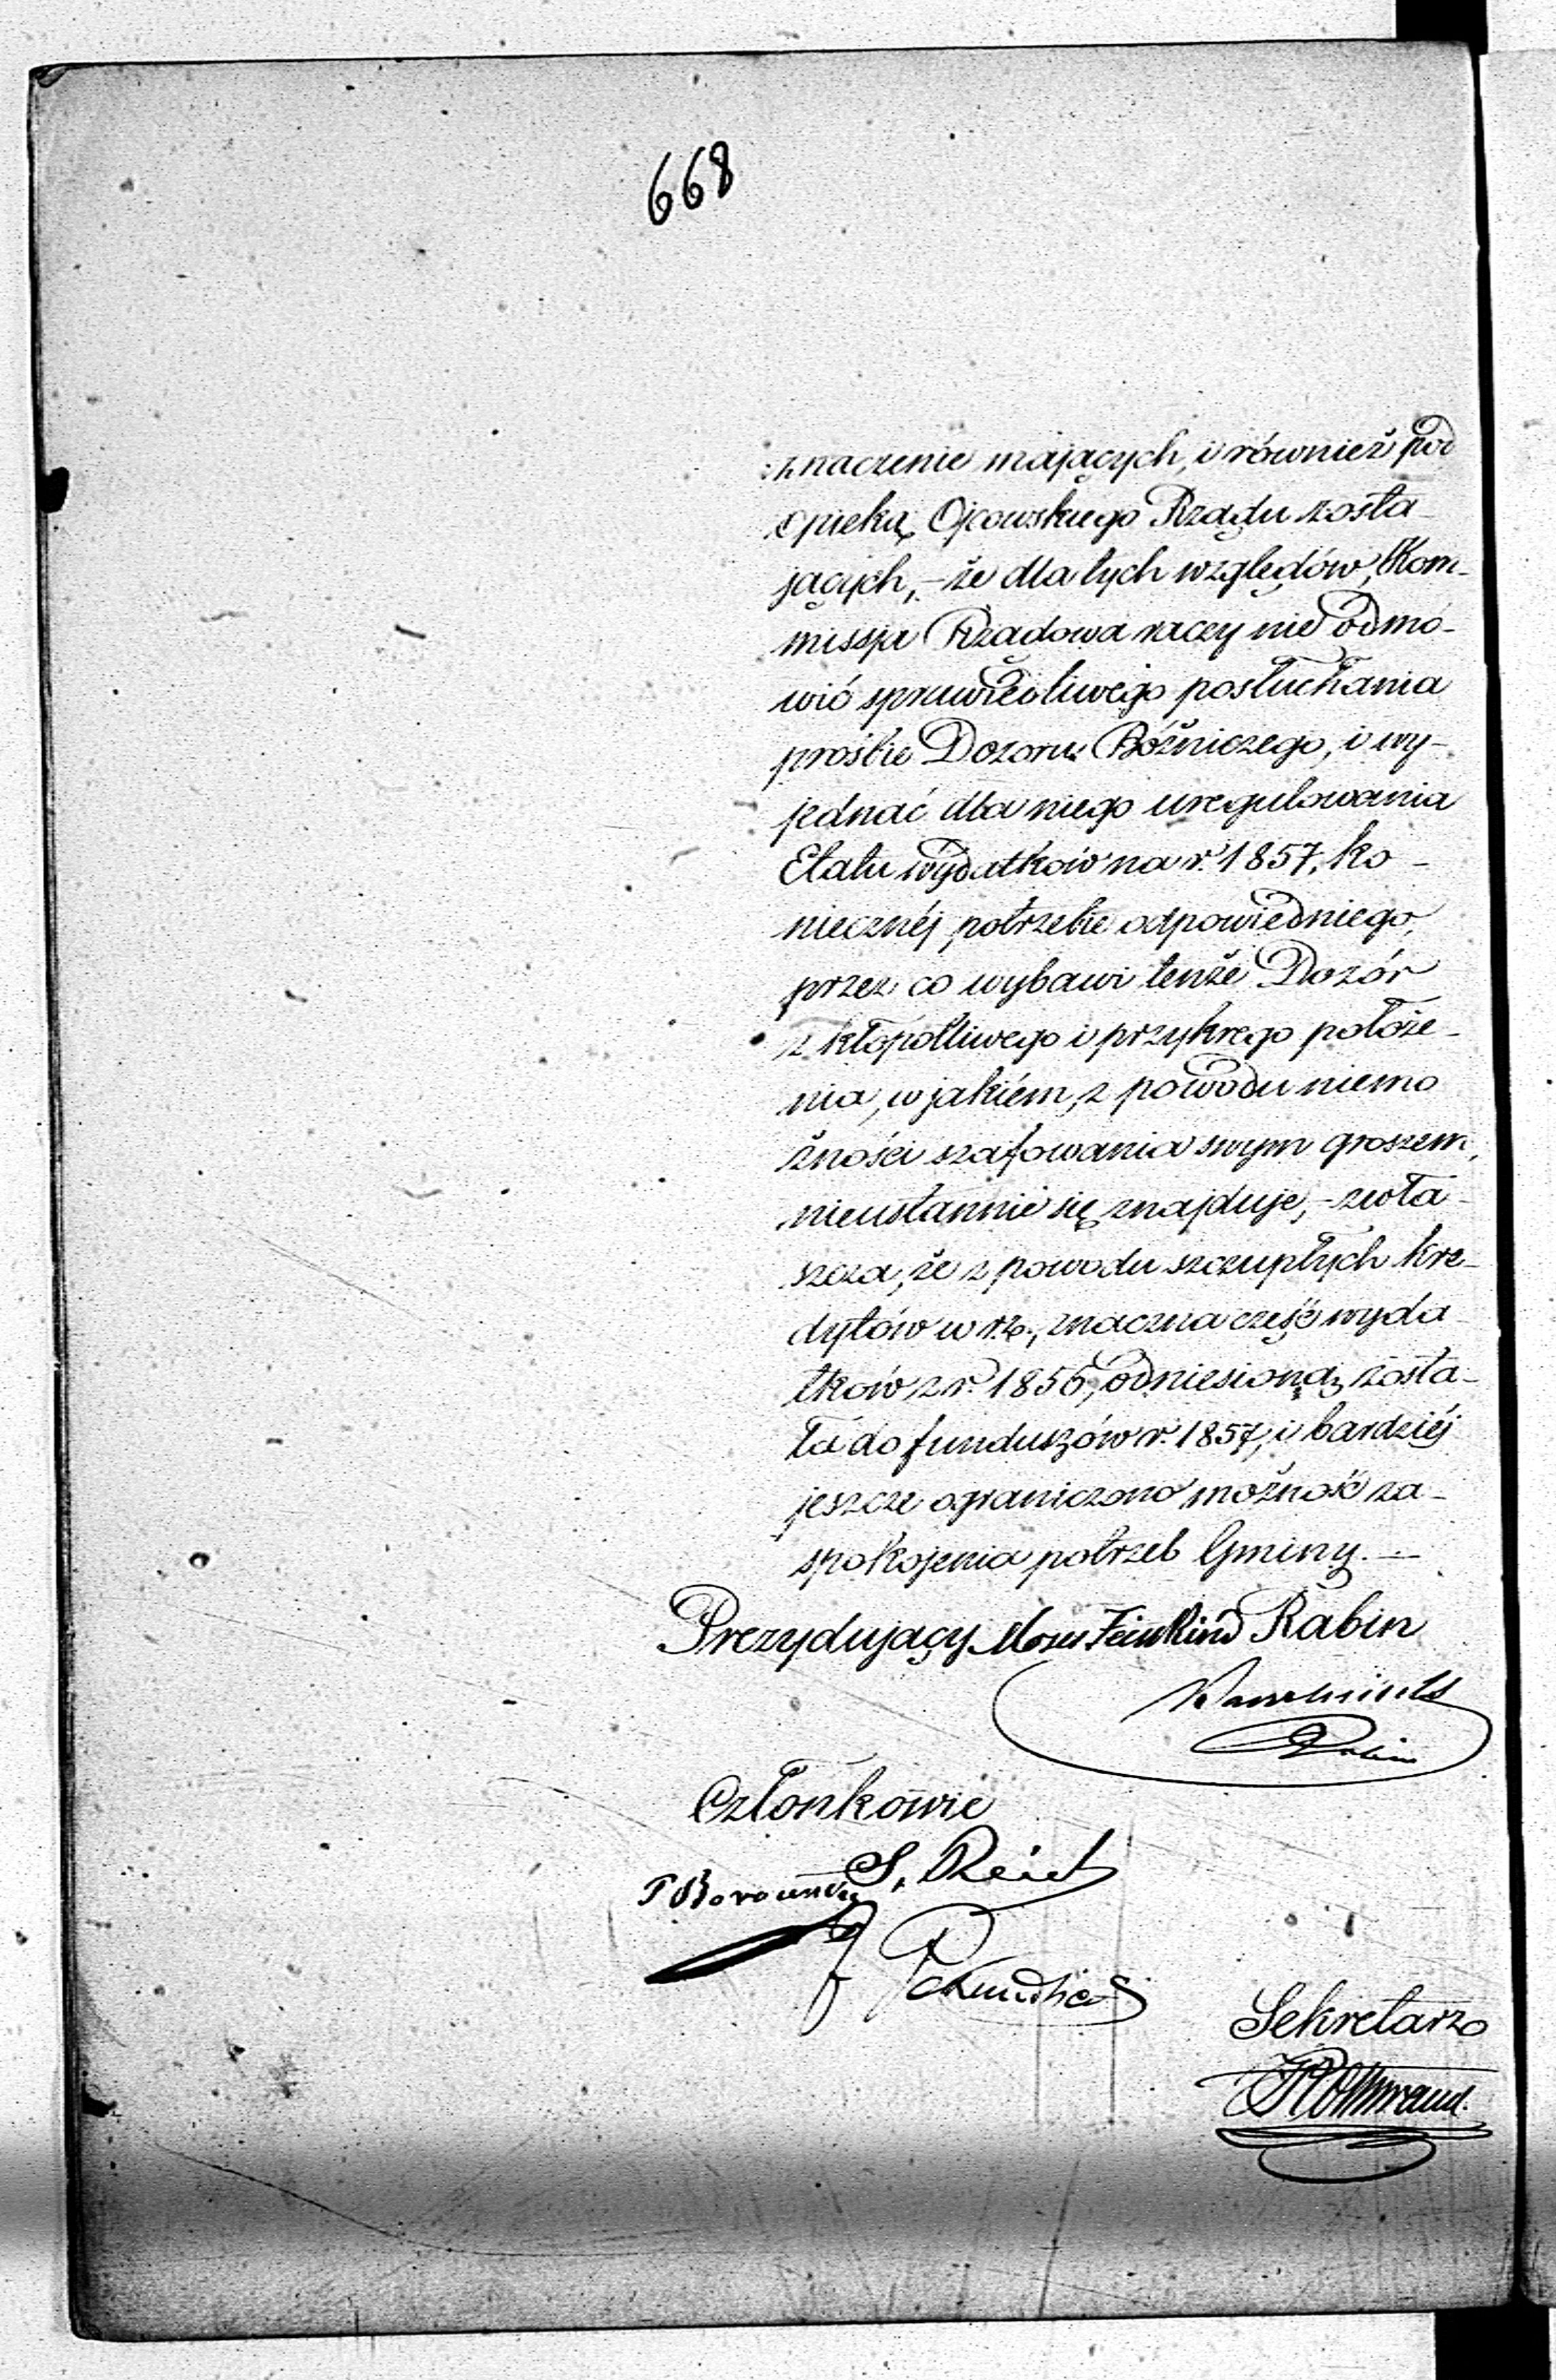 668
znaczenie mających, i również pod
Opieką Ojcowskiego Rządu zosta-
jących, - że dla tych względów, Kom-
missja Rządowa raczy nie odmó-
wić sprawiedliwego posłuchania
prośbie Dozoru Bóżniczego, i wy-
jednać dla niego uregulowania
Etatu wydatków na r. 1857, ko-
niecznéj potrzebie odpowiedniego,
przez co wybawi tenże Dozór
z kłopotliwego i przykrego położe-
nia, w jakiém, z powodu niemo
żności szafowania swym groszem,
nieustannie się znajduje, - zwła-
szcza, że z powodu szczupłych kre-
dytów w r.b., znaczna część wyda
tków z r. 1856, odniesioną zosta-
ła do funduszów r. 1857, i bardziéj
jeszcze ograniczono możność za-
spokojenia potrzeb Gminy. —
Prezydujący Mozes Feinkind Rabin
Rabin
Członkowie
S. Reich
Sekretarz